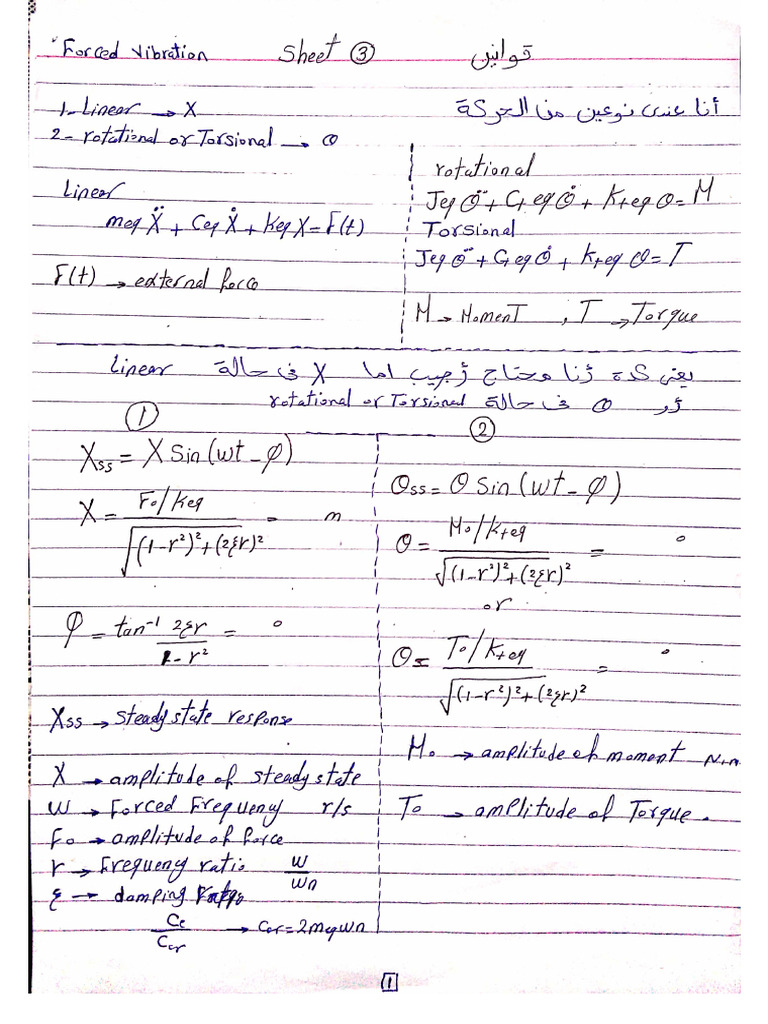 Forced Vibration Sheet ③ قوانين
أنا عندى نوعين من الحركة
1- Linear → X
2- rotational or Torsional → θ
Linear
meq Ẍ + Ceq Ẋ + Keq X = F(t)
F(t) → external force
rotational
Jeq θ̈ + Ct eq θ̇ + Kt eq θ = M
Torsional
Jeq θ̈ + Ct eq θ̇ + Kt eq θ = T
M → Moment , T → Torque
يعنى كدة أنا محتاج أجيب اما X فى حالة Linear
أو θ فى حالة rotational or Torsional
①
Xss = X Sin(wt - φ)
X = F0/Keq / √((1-r²)² + (2ξr)²) = m
φ = tan⁻¹ 2ξr / 1-r² = °
Xss → steady state response
X → amplitude of steady state
w → Forced Frequency r/s
F0 → amplitude of force
r → Frequeny ratio w/wn
ξ → damping
Cc/Ccr → Ccr = 2meqwn
②
θss = θ Sin(wt - φ)
θ = M0/Kteq / √((1-r²)² + (2ξr)²) = °
or
θ = T0/Kteq / √((1-r²)² + (2ξr)²) = °
M0 → amplitude of moment N.m
T0 → amplitude of Torque.
1